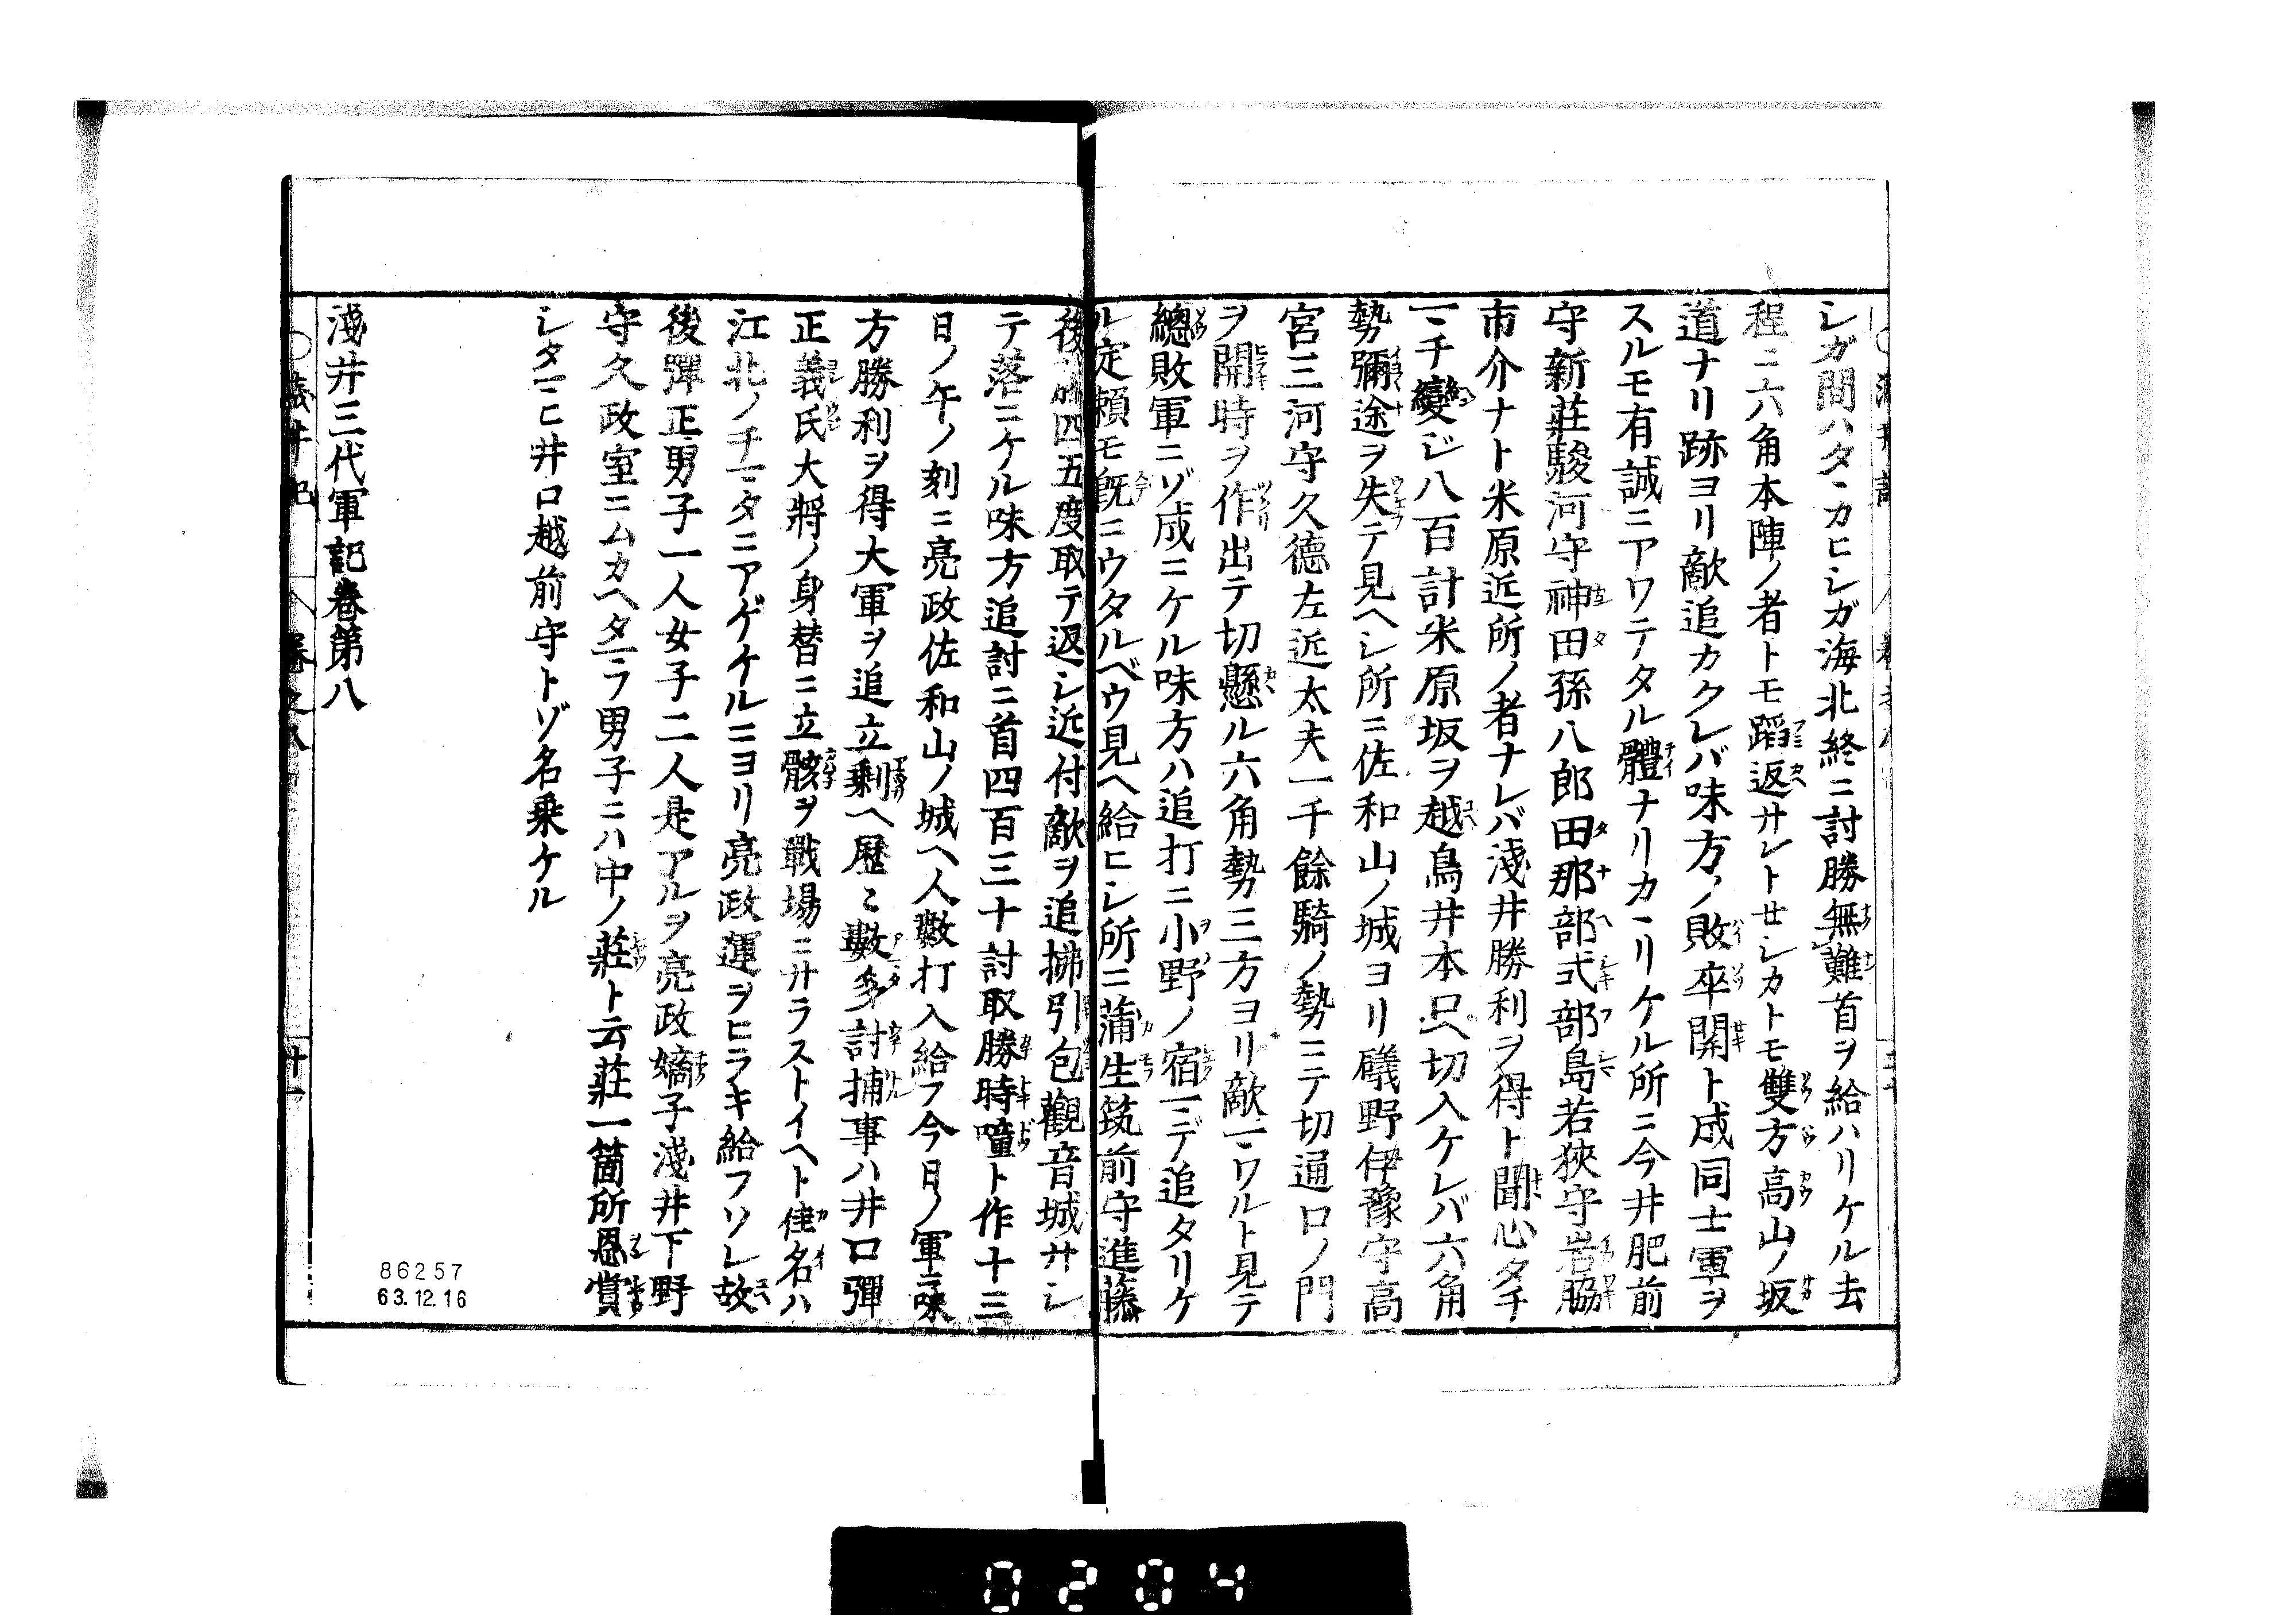 シガ間ハタヽカヒシガ海北終ニ討勝無難首ヲ給ハリケル去
程ニ六角本陣ノ者トモ蹈返サレトせシカトモ雙方高山ノ坂
道ナリ跡ヨリ敵追カクレバ味方ノ敗卒開ト成同士軍ヲ
スルモ有誠ニアワテタル體ナリカヽリケル所ニ今井肥前
守新莊駿河守神田孫八郎田那部式部島若狹守岩脇
市介ナト米原近所ノ者ナレバ淺井勝利ヲ得ト聞心タチ
マチ變ジ八百計米原坂ヲ越鳥井本口ヘ切入ケレバ六角
勢彌途ヲ失テ見ヘシ所ニ佐和山ノ城ヨリ礒野伊豫守高
宮三河守久德左近太夫一千餘騎ノ勢ニテ切通口ノ門
ヲ開時ヲ作出テ切懸ル六角勢三方ヨリ敵マワルト見テ
總敗軍ニゾ成ニケル味方ハ追打ニ小野ノ宿マデ追タリケ
ル定頼モ既ニウタルベウ見ヘ給ヒシ所ニ蒲生筑前守進藤
後藤四五度取テ返シ近付敵ヲ追拂引包觀音城サシ
テ落ニケル味方追討ニ首四百三十討取勝時噇ト作十三
日ノ午ノ刻ニ亮政佐和山ノ城ヘ人數打入給フ今日ノ軍ニ味
方勝利ヲ得大軍ヲ追立剩ヘ歷ミ數多討捕事ハ井口彈
正義氏大將ノ身替ニ立骸ヲ戰場ニサラストイヘト佳名ハ
江北ノチマタニアゲケルニヨリ亮政運ヲヒラキ給フソレ故
後彈正男子一人女子二人是アルヲ亮政嫡子淺井下野
守久政室ニムカヘタマフ男子ニハ中ノ莊ト云莊一箇所恩賞
シタマヒ井口越前守トゾ名乗ケル
淺井三代軍記卷第八
卷之八
廿一
86257
63.12.16
0204